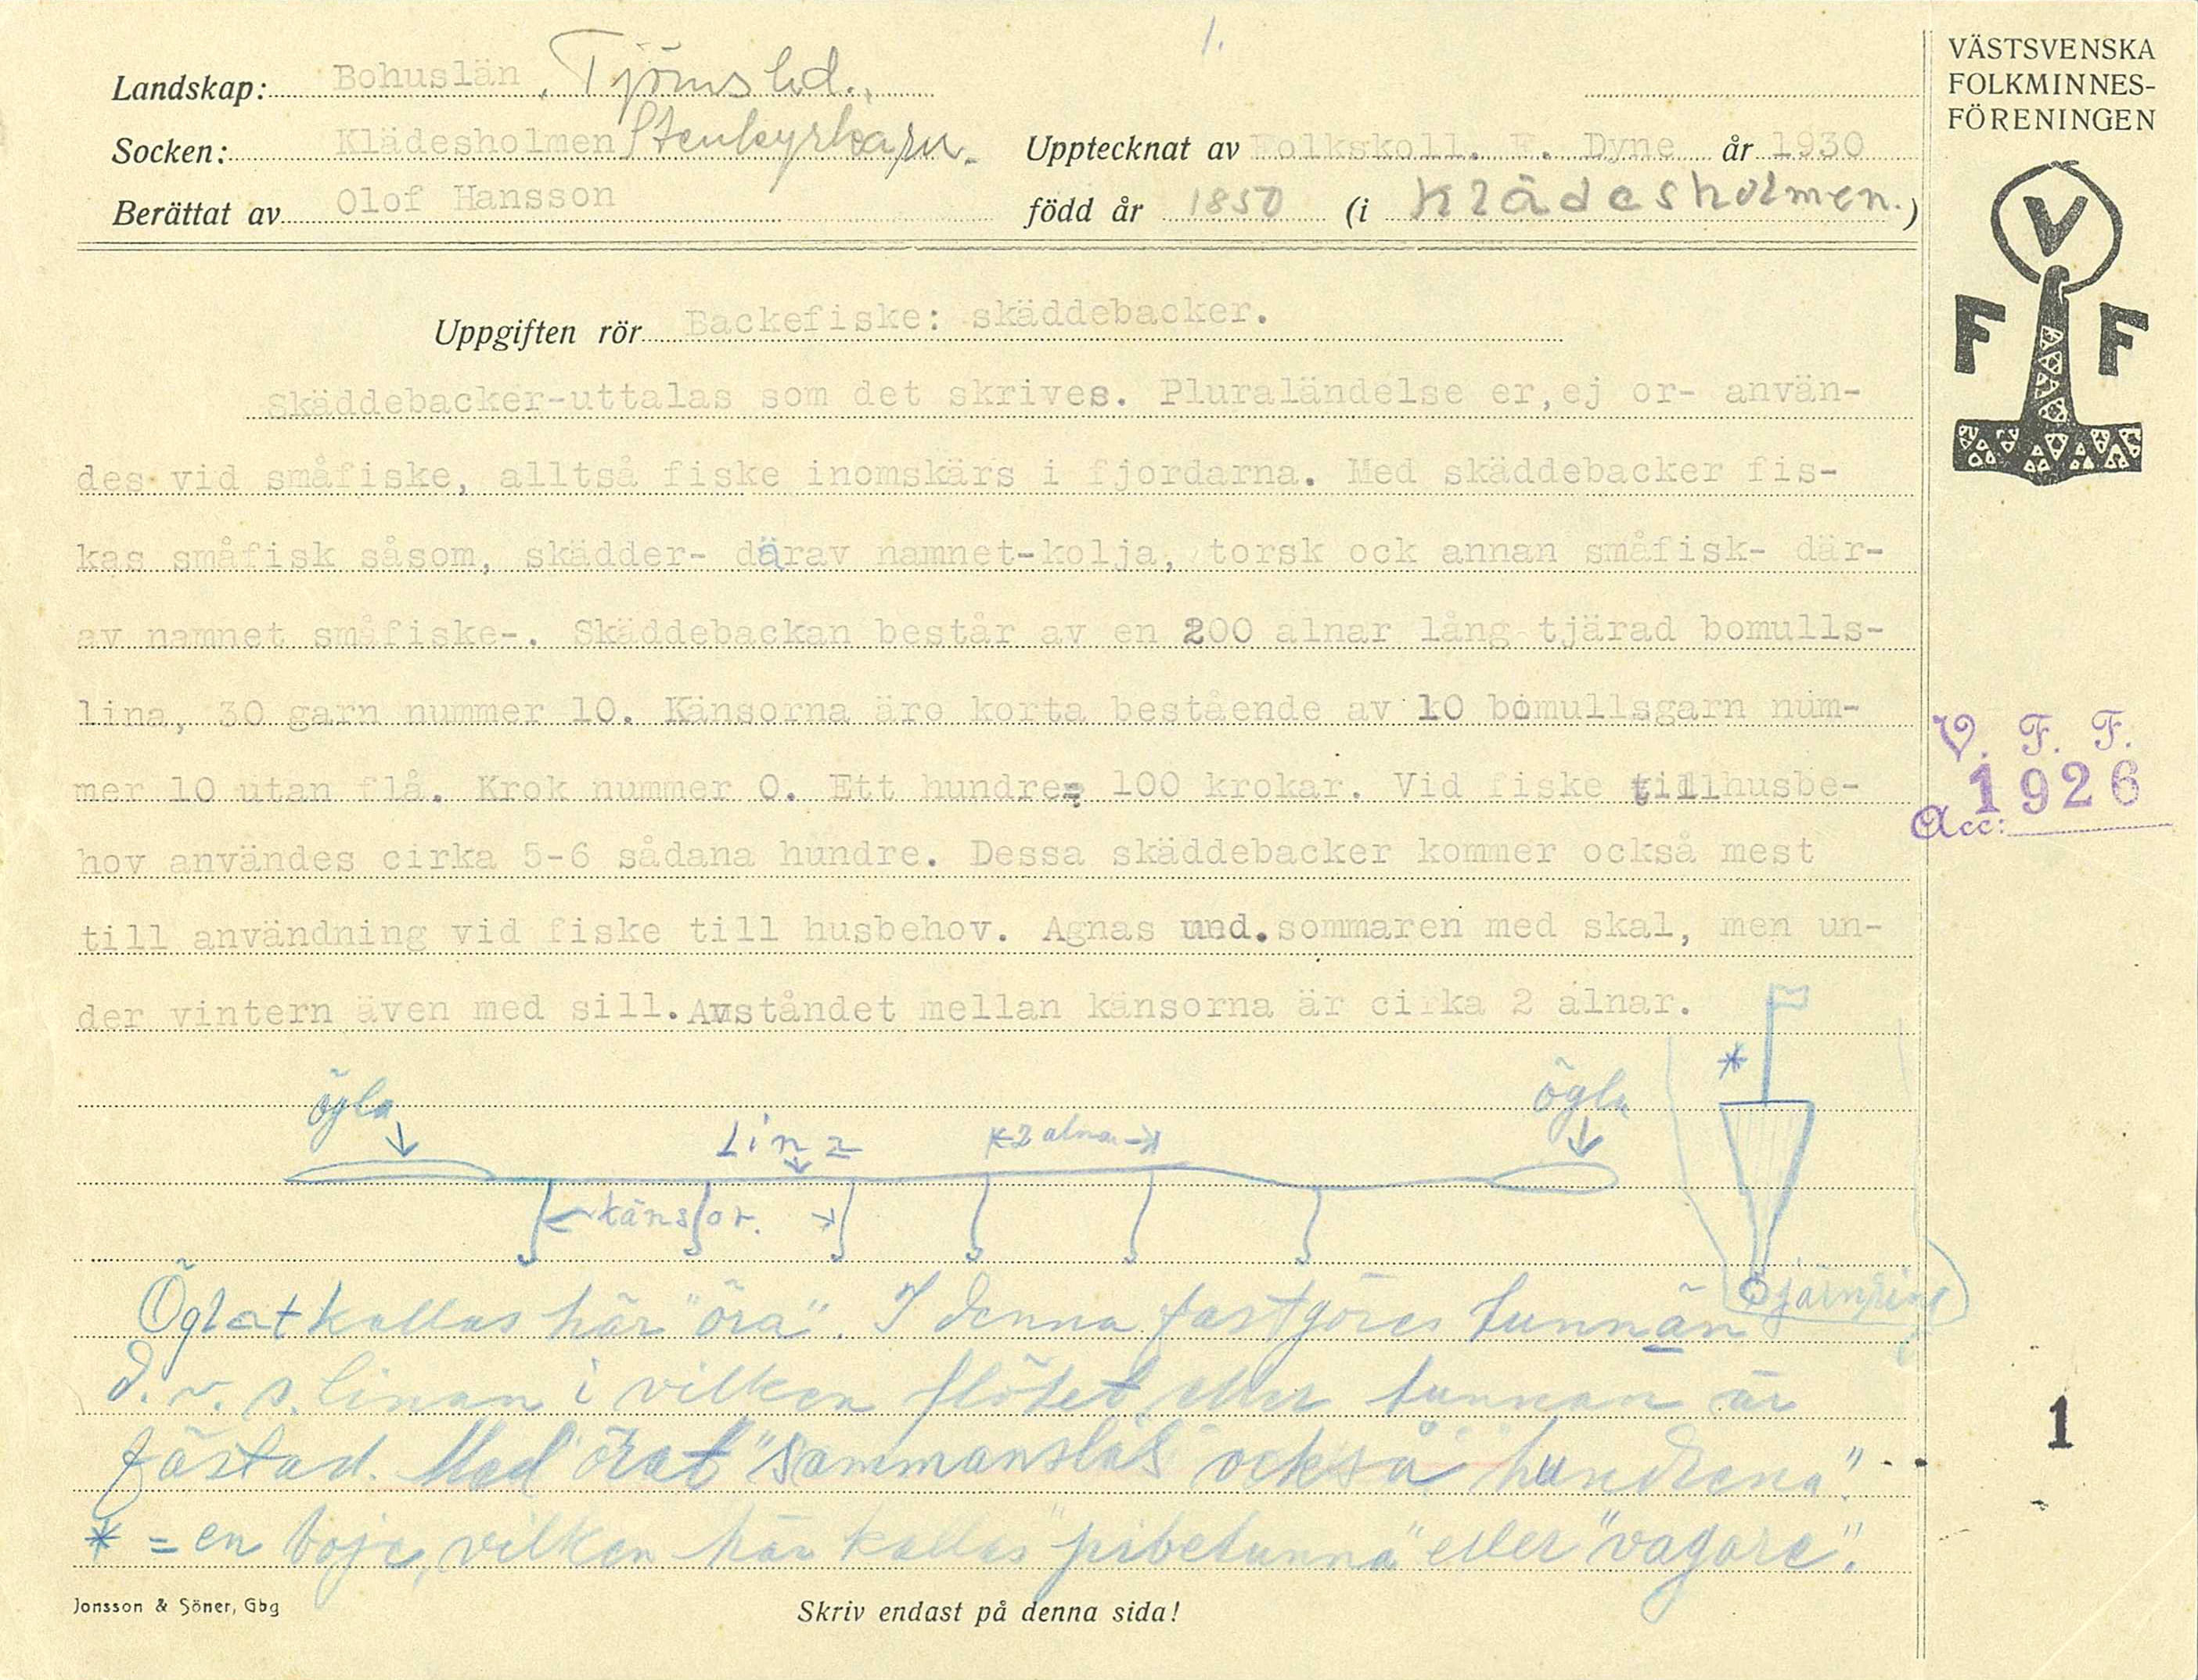 1.
Landskap: Bohuslän, Tjörns hd.
Socken: Klädesholmen Stenkyrka sn.
Upptecknat av Folkskoll. F. Dyne år 1930
Berättat av Olof Hansson
född år 1850 (i Klädesholmen.)
VÄSTSVENSKA
FOLKMINNES-
FÖRENINGEN
V
F F
Uppgiften rör Backefiske: skäddebacker.
Skäddebacker-uttalas som det skrives. Pluraländelse er,ej or- använ-
des vid småfiske, alltså fiske inomskärs i fjordarna. Med skäddebacker fis-
kas småfisk såsom, skädder- därav namnet-kolja, torsk ock annan småfisk- där-
av namnet småfiske-. Skäddebackan består av en 200 alnar lång tjärad bomulls-
lina, 30 garn nummer 10. Känsorna äro korta bestående av 10 bomullsgarn num-
mer 10 utan flå. Krok nummer 0. Ett hundre= 100 krokar. Vid fiske tillhusbe-
hov användes cirka 5-6 sådana hundre. Dessa skäddebacker kommer också mest
till användning vid fiske till husbehov. Agnas und. sommaren med skal, men un-
der vintern även med sill. Avståndet mellan känsorna är cirka 2 alnar.
V. F. F.
1926
Acc:
ögla
Lina
2 alnar
ögla
*
känsor.
järnring
Öglat kallas här "öra". I denna fastgöres tunnän
d.v.s. linan i vilken flötet eller tunnan är
fästad. Med "örat" sammanslås också "hundrena".
* = en boje, vilken här kallas "pibetunna" eller "vagare".
1
Jonsson & Söner, Gbg
Skriv endast på denna sida!